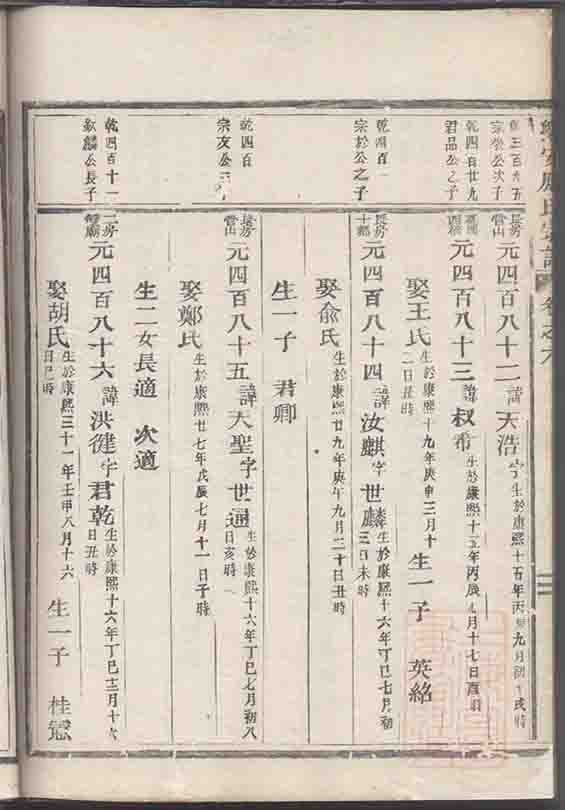 應氏宗譜
卷之六
乾三百九五
宗榮公次子
長房
當山
元四百八十二諱天浩字
生於康熙十五年丙辰九月初十戌時
乾四百廿九
君品公之子
元四百八十三諱叔希
生於康熙十五年丙辰 月十七日酉時
娶王氏
生於康熙十九年庚申三月十
二日丑時
生一子 英絡
乾四百一
宗於公之子
長房
十都
元四百八十四諱汝麒字世麟
生於康熙十六年丁巳七月初
三日未時
娶俞氏
生於康熙廿九年庚午九月二十日丑時
生一子 君卿
乾四百
宗友公三子
長房
當山
元四百八十五諱大聖字世通
生於康熙十六年丁巳七月初八
日亥時
娶鄭氏
生於康熙廿七年戊辰七月十一日子時
生二女長適 次適
乾四百十一
欽麟公長子
二房
雙廟
元四百八十六諱洪健字君乾
生於康熙十六年丁巳十二月十六
日丑時
娶胡氏
生於康熙三十一年壬申八月十六
日巳時
生一子 桂冠